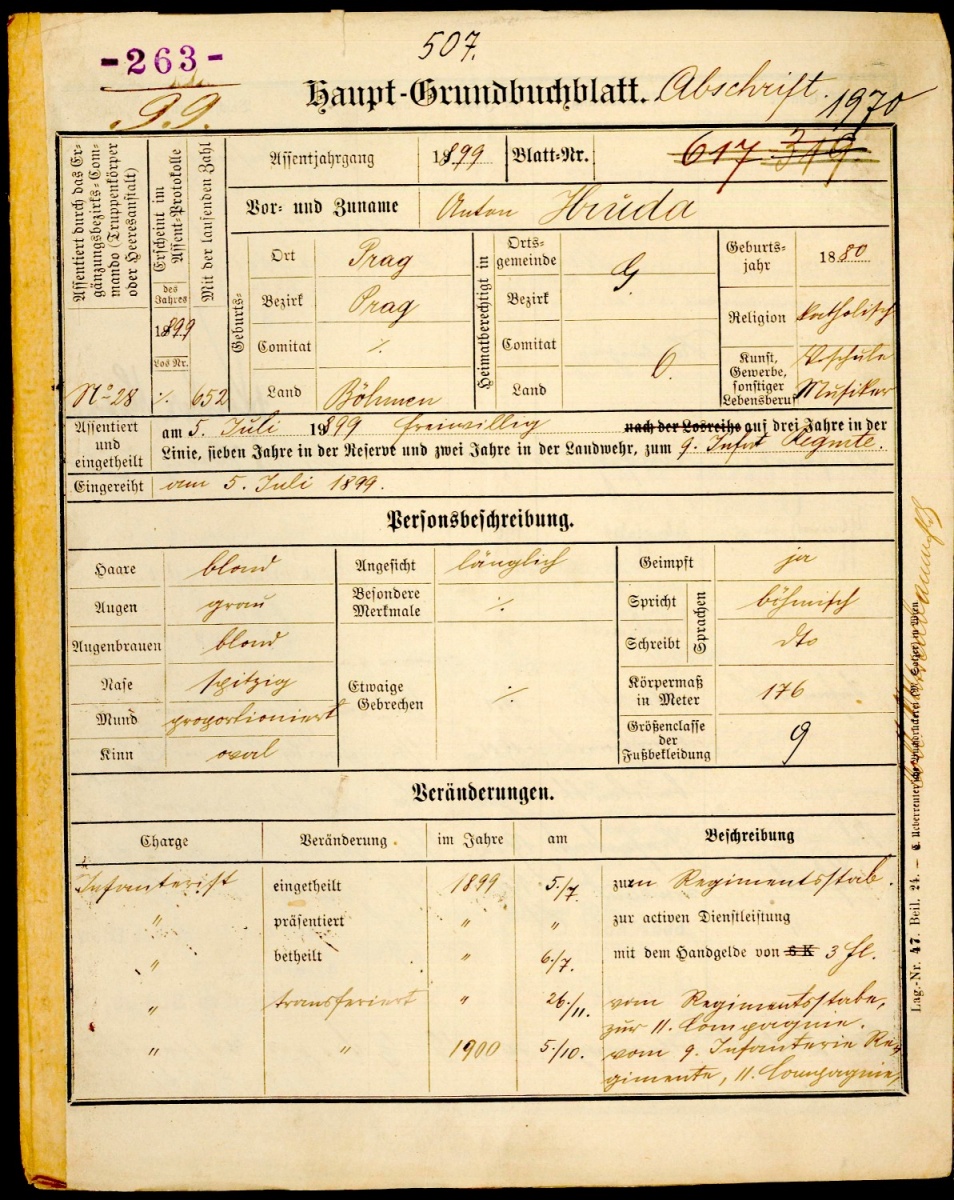 507.
-263-
99.
Haupt-Grundbuchblatt. Abschrift.
1970
Assentiert durch das Ergänzungsbezirks-Commando (Truppenkörper oder Heeresanstalt)
Erscheint im Assent-Protokolle
Mit der laufenden Zahl
des Jahres
1899
Los Nr.
No 28 ./. 652
Assentjahrgang 1899 Blatt-Nr. 617 319.
Vor- und Zuname Anton Hruda
Geburts-
Ort Prag
Bezirk Prag
Comitat ./.
Land Böhmen
Heimatberechtigt in
Ortsgemeinde
Bezirk
Comitat
Land
G.
O.
Geburtsjahr 1880
Religion katholisch
Kunst, Gewerbe, sonstiger Lebensberuf Vschule Musiker
Assentiert und eingetheilt
am 5. Juli 1899 freiwillig nach der Losreihe auf drei Jahre in der
Linie, sieben Jahre in der Reserve und zwei Jahre in der Landwehr, zum 9. Inft Regmte.
Eingereiht am 5. Juli 1899.
Personsbeschreibung.
Haare blond
Augen grau
Augenbrauen blond
Nase spitzig
Mund proportioniert
Kinn oval
Angesicht länglich
Besondere Merkmale ./.
Etwaige Gebrechen ./.
Geimpft ja
Sprachen
Spricht böhmisch
Schreibt dto
Körpermaß in Meter 176
Größenclasse der Fußbekleidung 9
Veränderungen.
Charge Veränderung im Jahre am Beschreibung
Infanterist eingetheilt 1899 5./7. zum Regimentsstab.
" präsentiert " " zur activen Dienstleistung
" betheilt " 6./7. mit dem Handgelde von 6 K 3 fl.
" transferiert " 26./11. vom Regimentsstabe,
zur 11. Compagnie.
" " 1900 5./10. vom 9. Infanterie Re-
gimente, 11. Compagnie,
Lag.-Nr. 47. Beil. 24. —